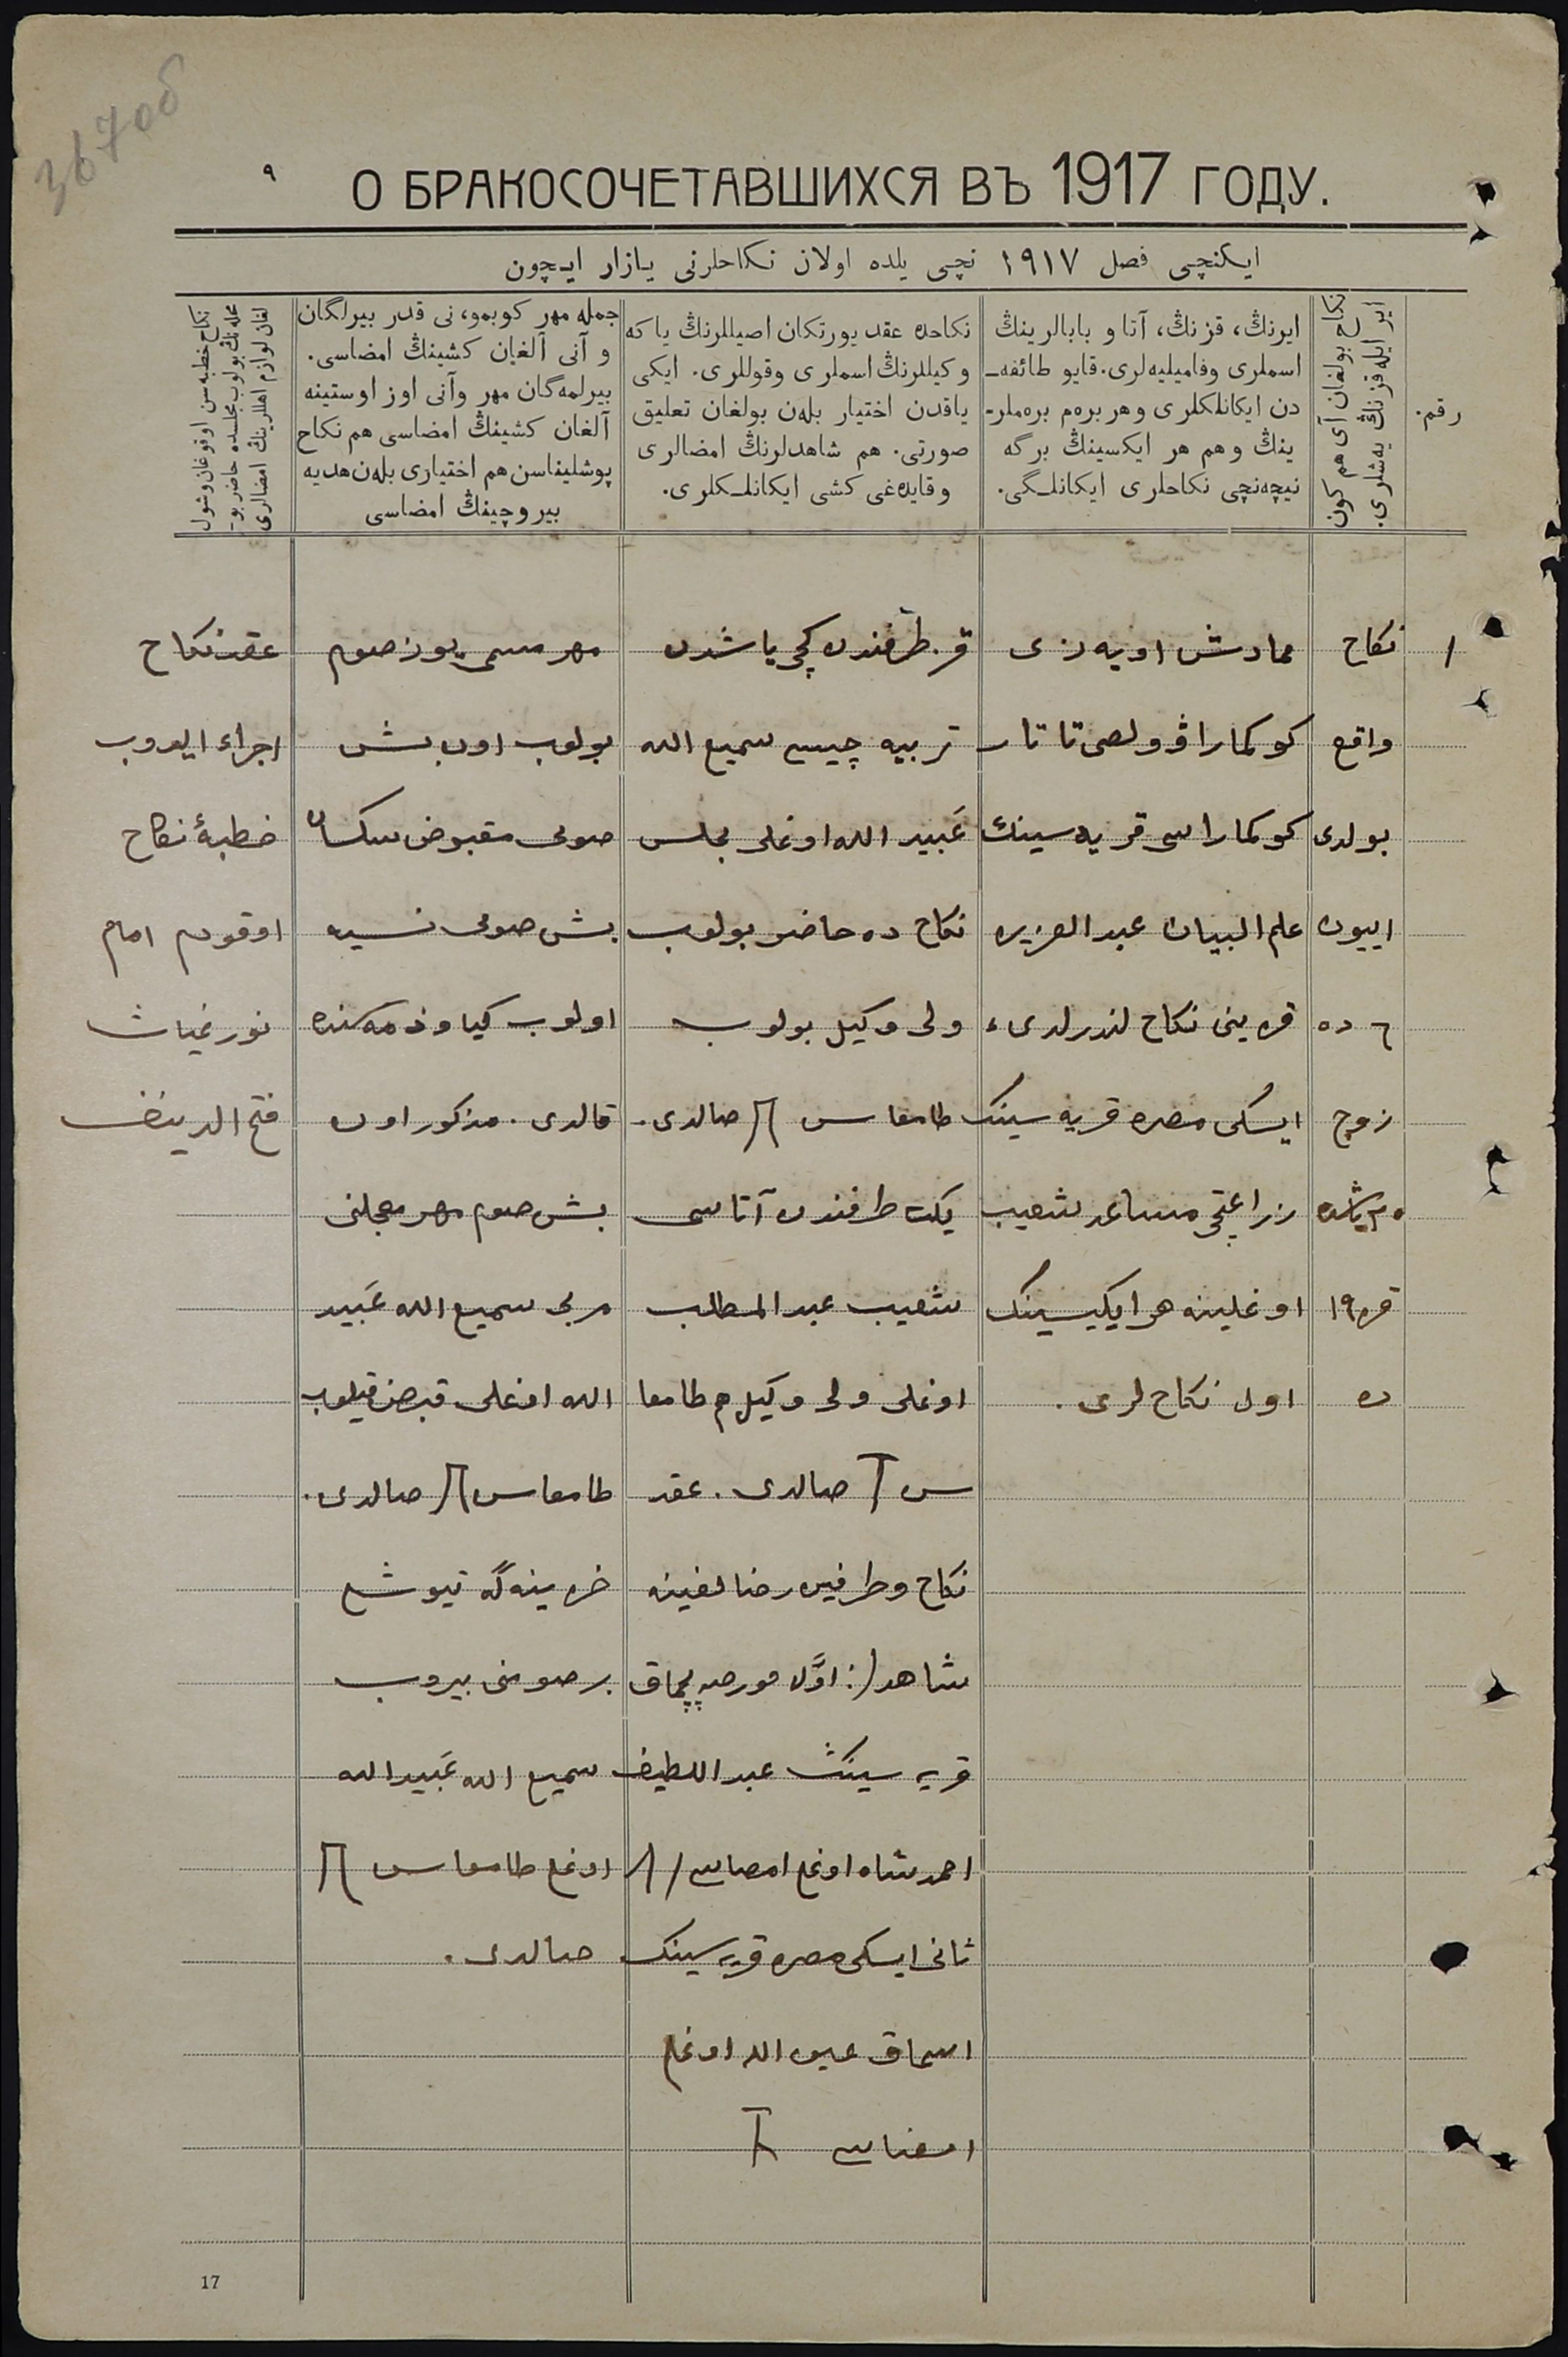 367об
٩
О БРАКОСОЧЕТАВШИХСЯ ВЪ 1917 ГОДУ.
ایکنچی فصل ١٩١٧ نچی یلده اولان نکاحلرنی یازار ایچون
رقم.
نکاح بولغان آی هم کون
ایر ایله قزنڭ یه‌شلری.
ایرنڭ، قزنڭ، آتا و بابالرینڭ
اسملری وفامیلیه‌لری. قایو طائفه‌ـ
دن ایکانلکلری وهر بره‌م بره‌ملرـ
ینڭ وهم هر ایکسینڭ برگه
نیچه‌نچی نکاحلری ایکانلـگی.
نکاحده عقد یورتکان اصیللرنڭ یا که
وکیللرنڭ اسملری وقوللری. ایکی
یاقدن اختیار بله‌ن بولغان تعلیق
صورتی. هم شاهدلرنڭ امضالری
وقایده‌غی کشی ایکانلـکلری.
جمله مهر کوبمو، نی قدر بیرلگان
و آنی آلغان کشینڭ امضاسی.
بیرلمه‌گان مهر وآنی اوز اوستینه
آلغان کشینڭ امضاسی هم نکاح
پوشلیناسن هم اختیاری بله‌ن هدیه
بیروچینڭ امضاسی
نکاح خطبه‌سن اوقوغان وشول
محله‌نڭ بولوب مجلسده حاضر بوـ
لغان لوازم اهللرینڭ امضالری
١
نکاح
واقع
بولدی
اییون
٦ ده
زوج
٢٠ یاشده
قز ١٩
ده
ممادش اویه‌زی
کوکماراڤ ولصی تاتار
کوکماراسی قریه سینڭ
علم البیان عبد العزیز
قزینی نکاح لندرلدی
ایسکی مصره قریه سینڭ
زراعتچی مساعد شعیب
اوغلینه هر ایکیسینڭ
اول نکاح لری.
قز طرفندن کچی یاشدن
تربیه چیسی سمیع الله
عَبید الله اوغلی مجلس
نکاح ده حاضر بولوب
ولی وکیل بولوب
طامغاسن صالدی.
یکت طرفندن آتاسی
شعیب عبد المطلب
اوغلی ولی وکیلم طامغا
سن صالدی. عقد
نکاح وطرفین رضالغینه
شاهدلر: اوّل
قریه سینڭ عبد اللطیف
احمدشاه اوغلی امضاسی
ثانی ایسکی مصره قریه سینڭ
اسحاق اوغلی
امضاسی
مهر مسمی یوز صوم
بولوب اون بش
صومی مقبوض سکسان
بش صومی نسیه
اولوب کیاو ذمه‌سنده
قالدی. مذکور اون
بش صوم مهر معجلنی
مربی سمیع الله عَبید
الله اوغلی قبض قیلوب
طامغاسن صالدی.
خزینه‌گه تیوشلی
بر صومنی بیروب
سمیع الله عَبید الله
اوغلی طامغاسن
صالدی.
عقد نکاح
اجراء ایدوب
خطبهٔ نکاح
اوقودم امام
نورغیاث
فتح الدینف
17